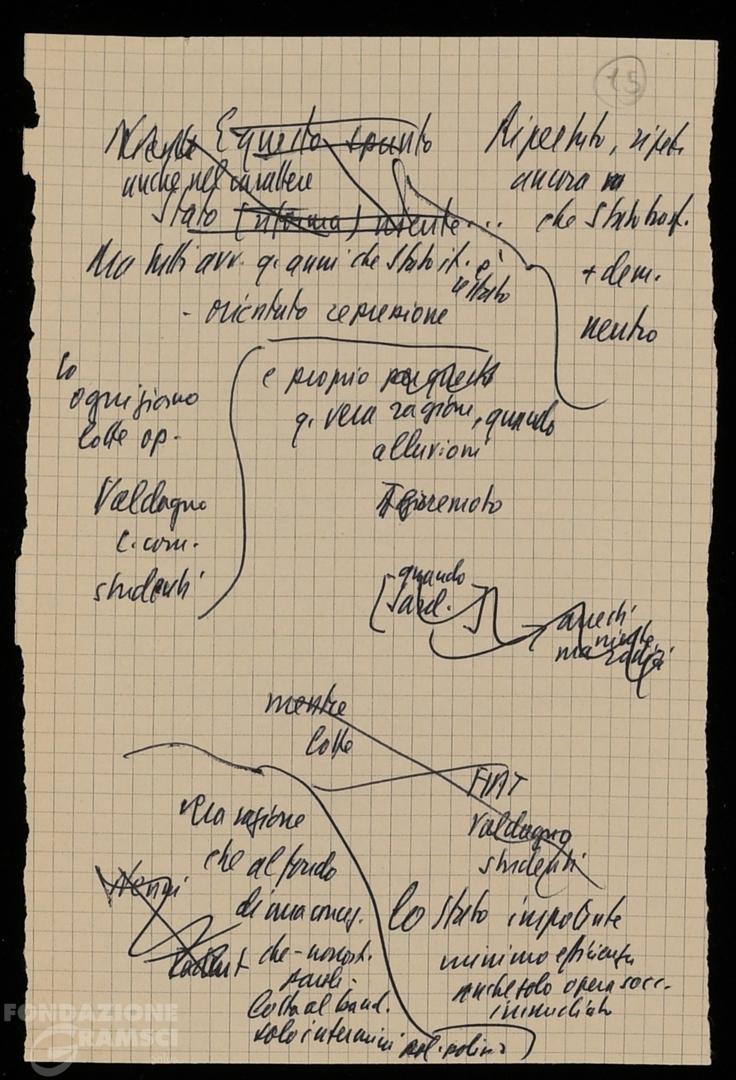 15
E questo spunto
anche nel carattere
Stato (riforma) niente...
Ma tutti avv. q. anni che Stato it. è
restato
- orientato repressione
Ripetuto, ripete
ancora
che Stato
+ dem.
neutro
lo
ogni giorno
lotte op.
Valdagno
e com.
studenti
e proprio per questo
q. vera ragione, quando
alluvioni
Terremoto
[quando
Sard.]
anechi
niente,
ma
mentre
lotte
FIAT
Valdagno
studenti
vera ragione
che al fondo
di una concez.
che - nonost.
parole
Lotta al band.
solo in termini pol. polizia
Nenni
lo Stato impotente
minimo efficienza
anche solo opera socc.
immediato
FONDAZIONE
GRAMSCI